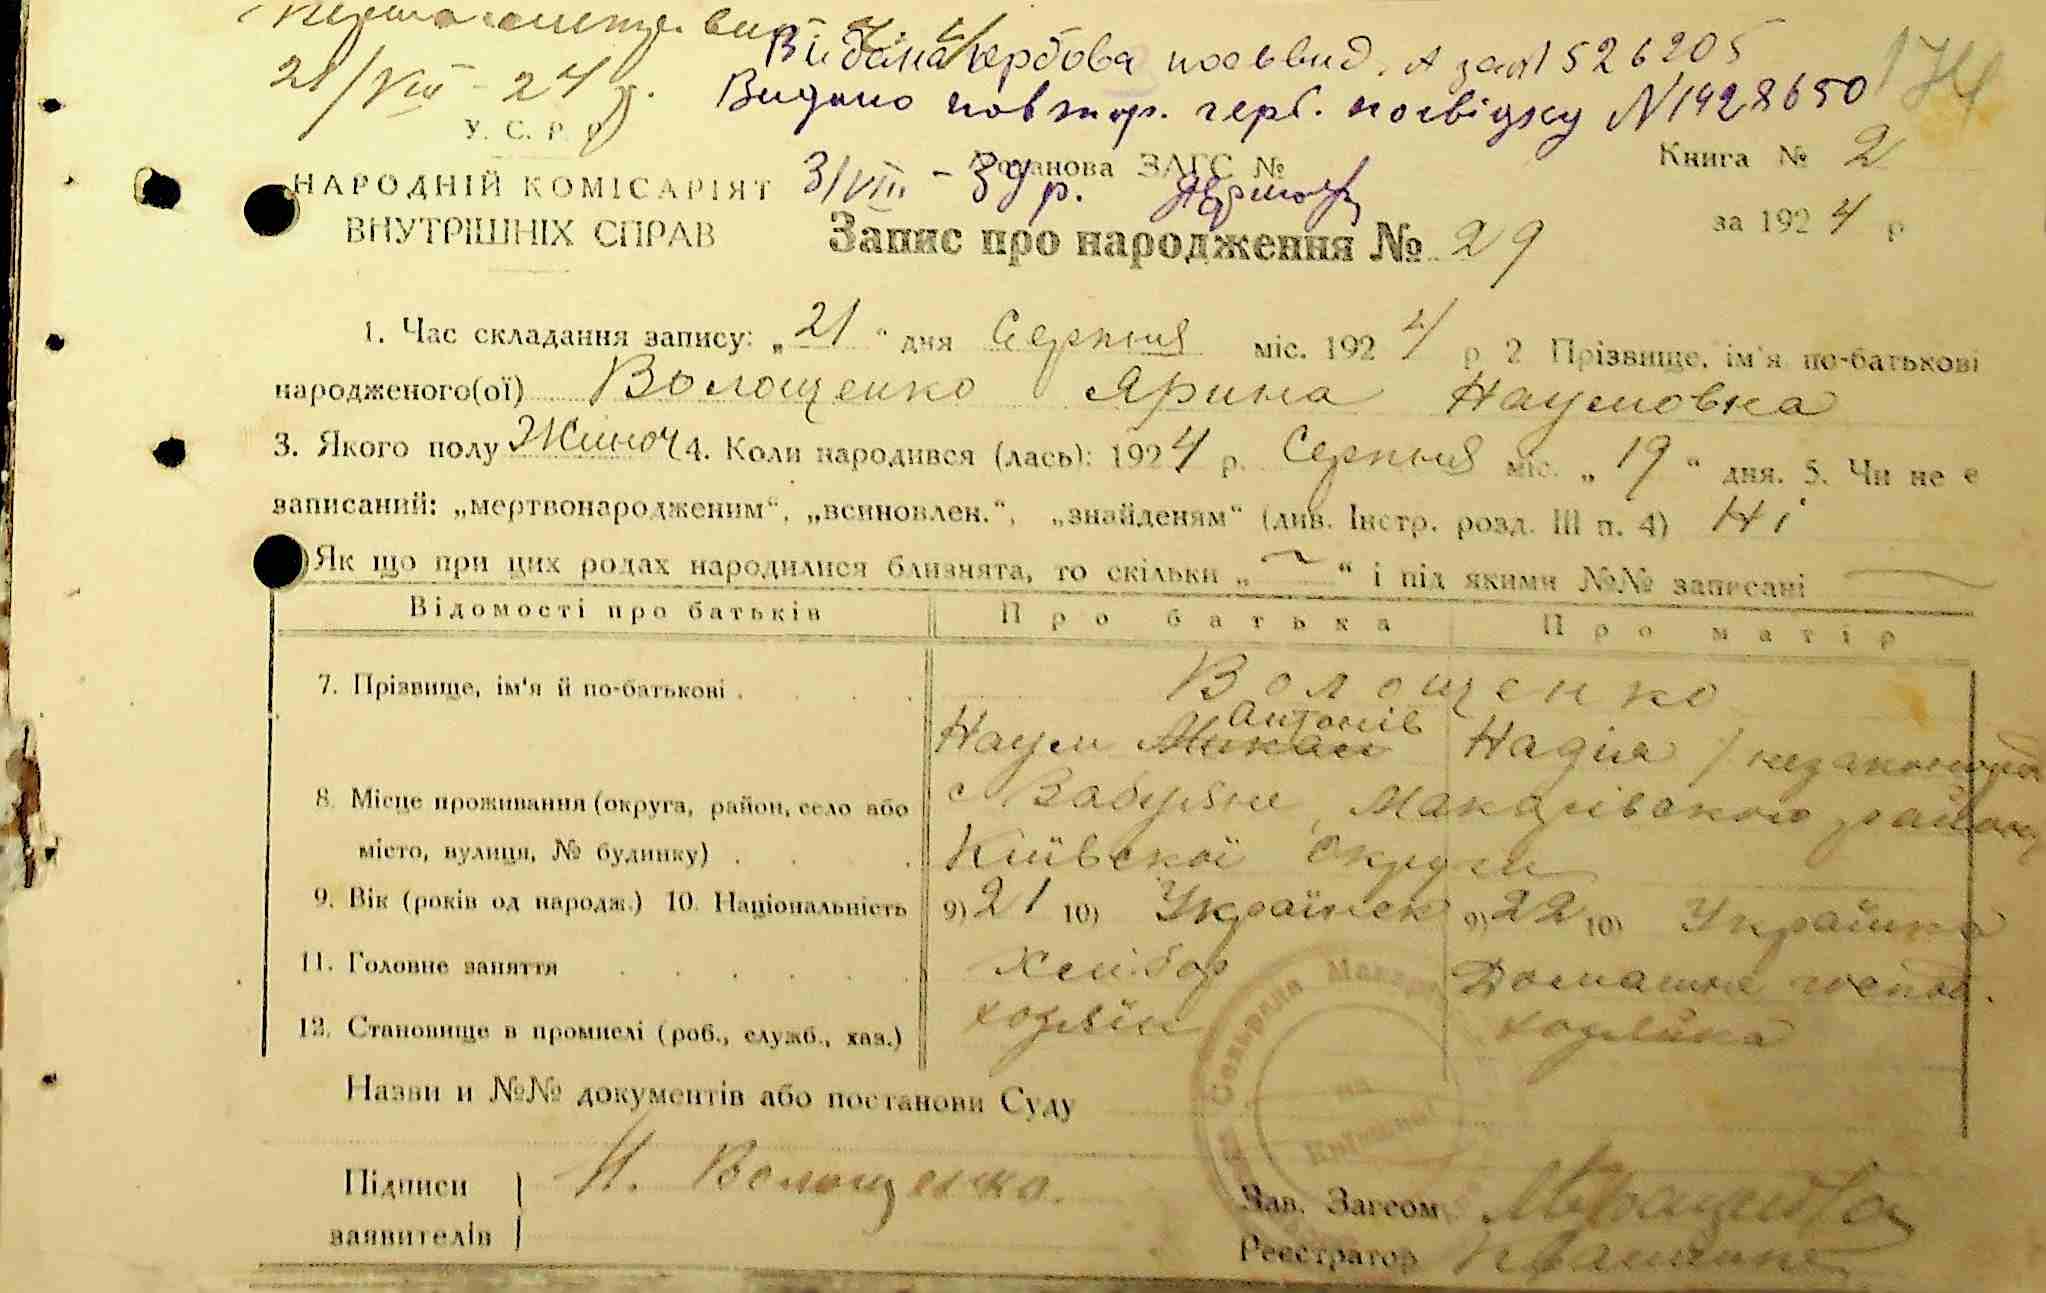 21/VIII - 24 р.
Видана гербова посьвид. А за № 526205
Видано повтор. герб. посвідку №1428650
174
У. С. Р. Р.
НАРОДНІЙ КОМІСАРІЯТ
ВНУТРІШНІХ СПРАВ
31/VIII - 39 р.
Установа ЗАГС №
Книга № 2
за 1924 р
Запис про народження № 29
1. Час складання запису: „21“ дня Серпня міс. 1924 р 2 Прізвище, ім'я по-батькові
народженого(ої) Волощенко Ярина Наумовка
3. Якого полу Жіноч 4. Коли народився (лась): 1924 р. Серпня міс. „19“ дня. 5. Чи не є
записаний: „мертвонародженим“, „всиновлен.“, „знайденям“ (див. Інстр. розд. III п. 4) Ні
Як що при цих родах народилися близнята, то скільки „—“ і під якими №№ записані —
Відомості про батьків Про батька Про матір
7. Прізвище, ім'я й по-батькові . Волощенко
Антонів
Наум Надія
8. Місце проживання (округа, район, село або с Забуяне, Макарівского району
місто, вулиця, № будинку) . Київскої Округи
9. Вік (років од народж.) 10. Національність 9) 21 10) Українєк 9) 22 10) Українка
11. Головне заняття Хлібор Домашнє господ.
12. Становище в промислі (роб., служб., хаз.) хозяїн хозяйка
Назви и №№ документів або постанови Суду
Підписи Н. Волощенко.
заявителів
Зав. Загсом
Реєстратор
Сельрада Макар
на
Київщині